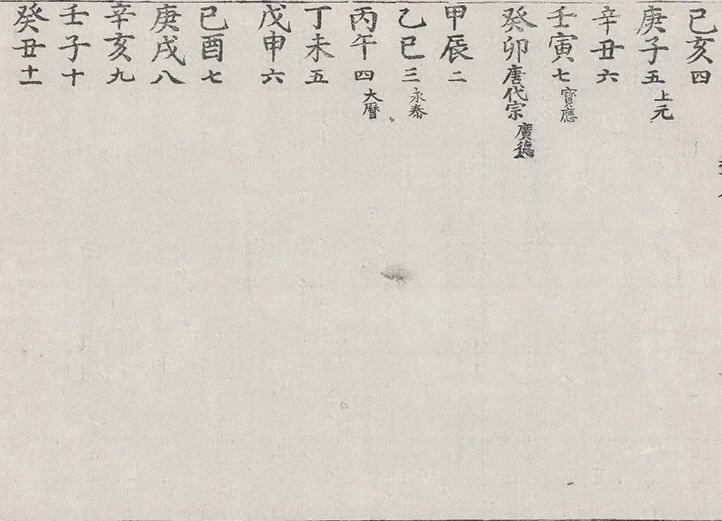 己亥四
庚子五上元
辛丑六
壬寅七寶應
癸卯唐代宗廣德
甲辰二
乙巳三永泰
丙午四大曆
丁未五
戊申六
己酉七
庚戌八
辛亥九
壬子十
癸丑十一